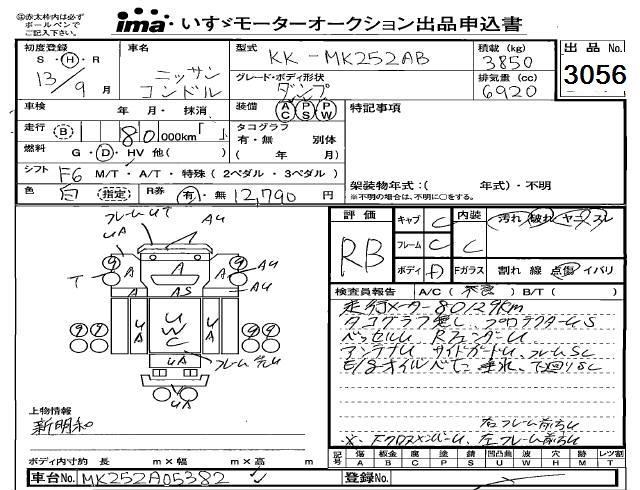 ㊟赤太枠内は必ず
ボールペンで
ご記入ください
ima いすゞモーターオークション出品申込書
初度登録
S・H・R
13/9 月
車名
ニッサン
コンドル
型式
KK-MK252AB
グレード・ボディ形状
ダンプ
積載 (kg)
3850
排気量 (cc)
6920
出品 No.
3056
車検 年 月・抹消
装備 AC PS PW
特記事項
走行 (B) 80,000km「 」
タコグラフ
有・無 別体
( 年 月)
燃料 G・D・HV 他( )
シフト F6 M/T・A/T・特殊(2ペダル・3ペダル)
色 白 指定 R券 有・無 12,790 円
架装物年式:( 年式)・不明
※不明の場合は、不明に○をする。
評価 RB
キャブ C
フレーム C
ボディ D
内装 C
汚れ 破れ ヤニ スレ
Fガラス 割れ 線 点傷 イバリ
検査員報告 A/C( 不良 ) B/T( )
走行メーター80129km
タコグラフ無し、プロテクターUS
ベッセルU RフェンダーU
アンテナU サイドガードU、フレームSC
下回りSC
右フレーム前方U
左フレーム前方U
フレームUT
UA
AU
A
T
A
AU
AS
AU
UA
UWC
UA
UA
上物情報
新明和
ボディ内寸約 長 m×幅 m×高 m
車台No. MK252A05382
記号 傷 A 板金 B 腐 C 塗 P 錆 S 凹凸曲 U 波 W 穴 H 跡 M レツ割 T
登録No.